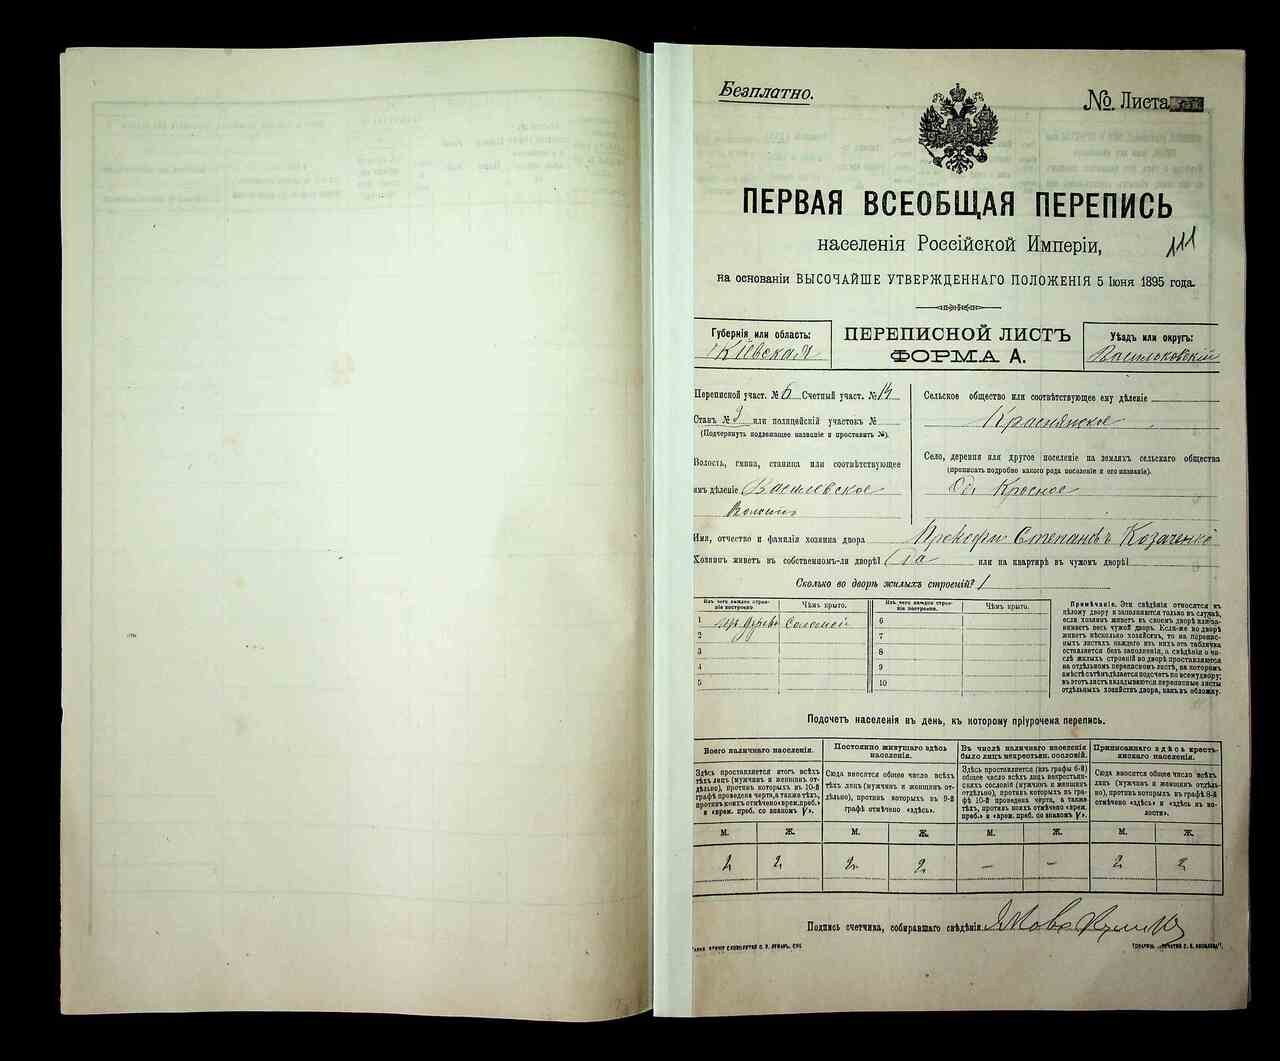 Безплатно.
№ Листа
ПЕРВАЯ ВСЕОБЩАЯ ПЕРЕПИСЬ
населенія Россійской Имперіи,
111
на основаніи ВЫСОЧАЙШЕ УТВЕРЖДЕННАГО ПОЛОЖЕНІЯ 5 Іюня 1895 года.
Губернія или область:
Кіевская
ПЕРЕПИСНОЙ ЛИСТЪ
ФОРМА А.
Уѣздъ или округъ:
Васильковскій
Переписной участ. № 6 Счетный участ. № 14
Станъ № 2 или полицейскій участокъ №
(Подчеркнуть подлежащее названіе и проставить №).
Волость, гмина, станица или соотвѣтствующее
имъ дѣленіе Василевское
Волость
Сельское общество или соотвѣтствующее ему дѣленіе
Краснянское
Село, деревня или другое поселеніе на земляхъ сельскаго общества
(прописать подробно какого рода поселеніе и его названіе).
Красное
Имя, отчество и фамилія хозяина двора Прокофи Степановъ Козаченко
Хозяинъ живетъ въ собственномъ-ли дворѣ? Да или на квартирѣ въ чужомъ дворѣ?
Сколько во дворѣ жилыхъ строеній? 1
Изъ чего каждое строеніе построено.
Чѣмъ крыто.
Изъ чего каждое строеніе построено.
Чѣмъ крыто.
1 изъ дерева Соломой
2
3
4
5
6
7
8
9
10
Примѣчаніе. Эти свѣдѣнія относятся къ
цѣлому двору и заполняются только въ случаѣ,
если хозяинъ живетъ въ своемъ дворѣ или занимаетъ весь чужой дворъ. Если-же во дворѣ
живетъ нѣсколько хозяйствъ, то на переписныхъ листахъ каждаго изъ нихъ эта табличка
оставляется безъ заполненія, а свѣдѣнія о числѣ жилыхъ строеній во дворѣ проставляются
на отдѣльномъ переписномъ листѣ, на которомъ
вмѣстѣ съ тѣмъ дѣлается подсчетъ по всему двору;
въ этотъ листъ вкладываются переписные листы
отдѣльныхъ хозяйствъ двора, какъ въ обложку.
Подсчетъ населенія въ день, къ которому пріурочена перепись.
Всего наличнаго населенія.
Здѣсь проставляется итогъ всѣхъ
лицъ (мужчинъ и женщинъ отдѣльно), противъ которыхъ въ 10-й
графѣ проведена черта, а также тѣхъ,
противъ коихъ отмѣчено «врем. преб.»
и «врем. преб. со знакомъ V».
Постоянно живущаго здѣсь
населенія.
Сюда вносится общее число всѣхъ
тѣхъ лицъ (мужчинъ и женщинъ отдѣльно), противъ которыхъ въ 9-й
графѣ отмѣчено «здѣсь».
Въ числѣ наличнаго населенія
было лицъ некрестьян. сословій.
Здѣсь проставляется (изъ графы 6-й)
общее число всѣхъ лицъ некрестьянскихъ сословій (мужчинъ и женщинъ
отдѣльно), противъ которыхъ въ графѣ 10-й проведена черта, а также
тѣхъ, противъ коихъ отмѣчено «врем.
преб.» и «врем. преб. со знакомъ V».
Приписаннаго здѣсь крестьянскаго населенія.
Сюда вносится общее число всѣхъ
лицъ (мужчинъ и женщинъ отдѣльно), противъ которыхъ въ графѣ 8-й
отмѣчено «здѣсь» и «здѣсь въ волости».
М. Ж. М. Ж. М. Ж. М. Ж.
2 2 2 2 – – 2 2
Подпись счетчика, собиравшаго свѣдѣнія